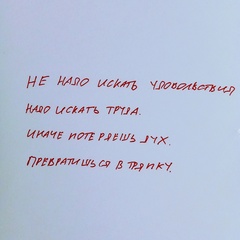 НЕ НАДО ИСКАТЬ УДОВОЛЬСТВИЯ
НАДО ИСКАТЬ ТРУДА.
ИНАЧЕ ПОТЕРЯЕШЬ ДУХ.
ПРЕВРАТИШЬСЯ В ТРЯПКУ.